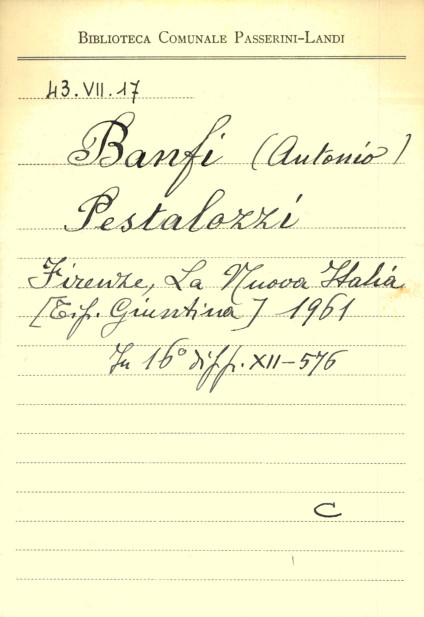 BIBLIOTECA COMUNALE PASSERINI-LANDI
43.VII.17
Banfi (Antonio)
Pestalozzi
Firenze, La Nuova Italia
[Tip. Giuntina] 1961
In 16° di pp. XII-576
C